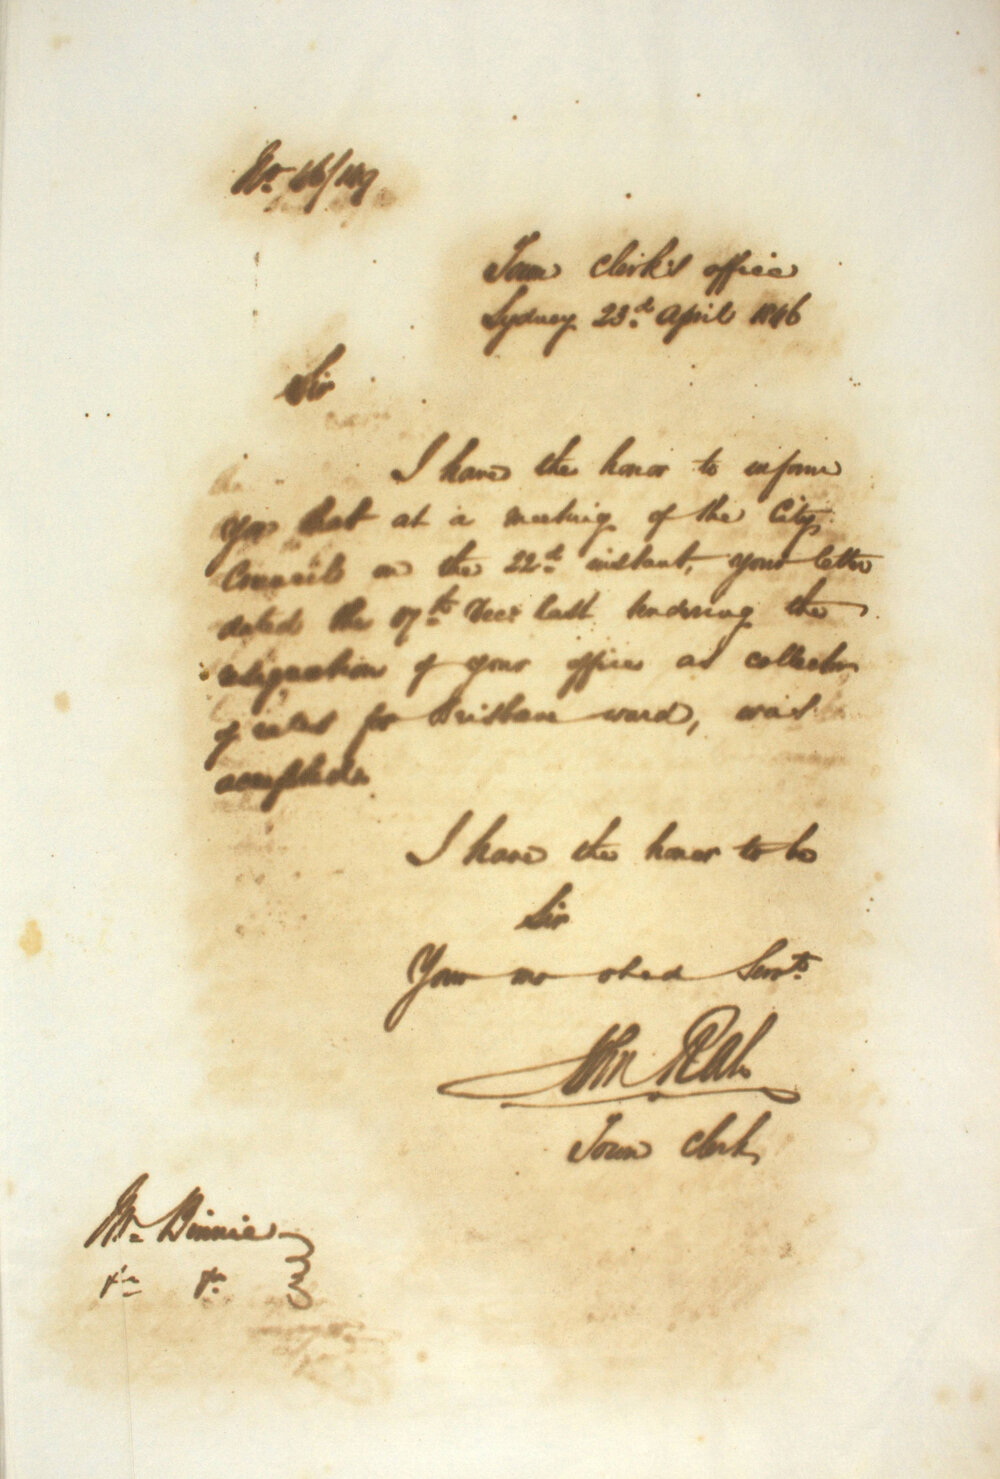 No. 46/149
Town Clerk's office
Sydney 23.d April 1846
Sir
I have the honor to inform
you that at a meeting of the City
Council on the 22.d instant, your letter
dated the 17.th Dec.r last tendering the
resignation of your office as collector
of rates for Brisbane ward, was
accepted.
I have the honor to be
Sir
Your mo obed Servt.
John Rae
Town Clerk
Mr. Binnie
&c &c